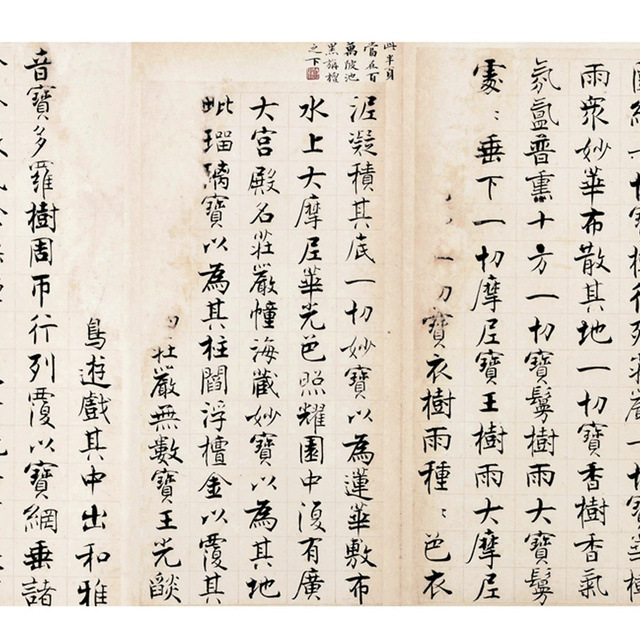 圍繞一切寶樹行列莊嚴一切寶樹
雨眾妙華布散其地一切寶香樹香氣
氛氳普熏十方一切寶鬘樹雨大寶鬘
處〻垂下一切摩尼寶王樹雨大摩尼
一切寶衣樹雨種〻色衣
此半頁
當在百
萬陂池
黑旃檀
之下
泥凝積其底一切妙寶以為蓮華敷布
水上大摩尼華光色照耀園中復有廣
大宮殿名莊嚴幢海藏妙寶以為其地
毗瑠璃寶以為其柱閻浮檀金以覆其
莊嚴無數寶王光燄
鳥遊戲其中出和雅
音寶多羅樹周帀行列覆以寶網垂諸